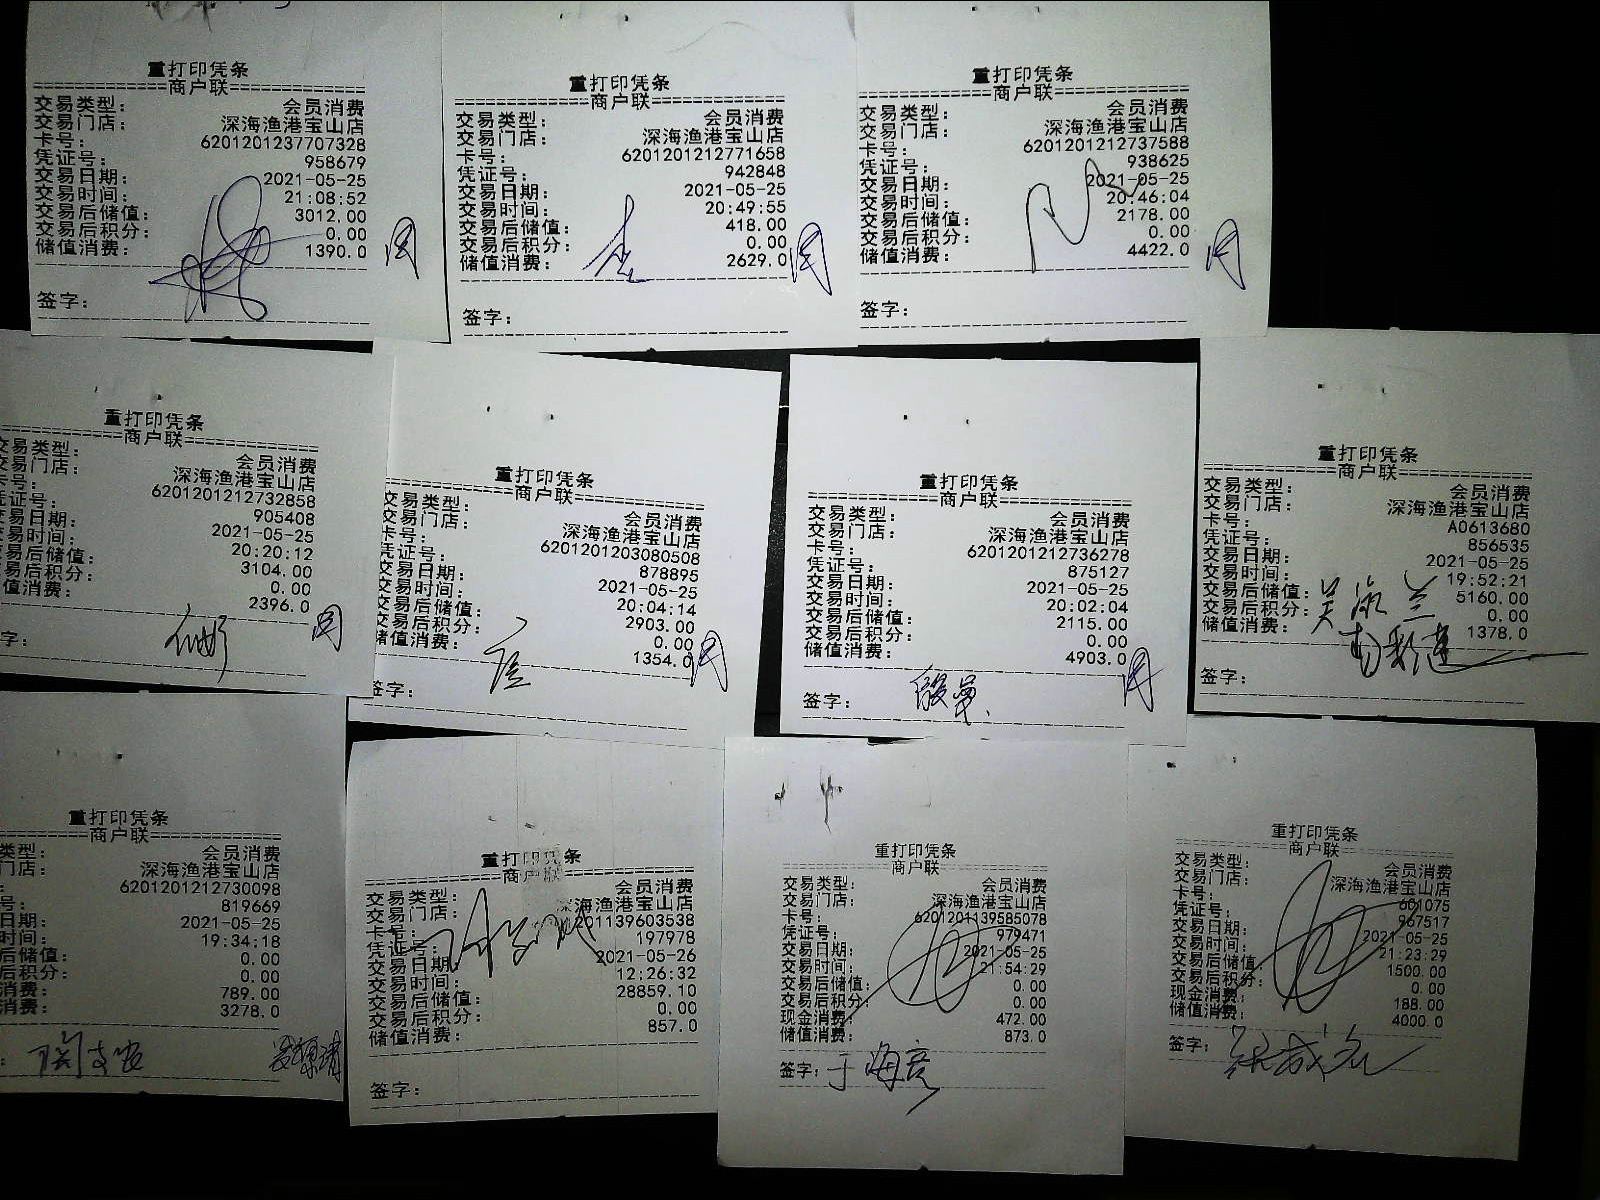 重打印凭条
======商户联======
交易类型： 会员消费
交易门店： 深海渔港宝山店
卡号： 6201201237707328
凭证号： 958679
交易日期： 2021-05-25
交易时间： 21:08:52
交易后储值： 3012.00
交易后积分： 0.00
储值消费： 1390.0
签字：
重打印凭条
======商户联======
交易类型： 会员消费
交易门店： 深海渔港宝山店
卡号： 6201201212771658
凭证号： 942848
交易日期： 2021-05-25
交易时间： 20:49:55
交易后储值： 418.00
交易后积分： 0.00
储值消费： 2629.0
签字：
重打印凭条
======商户联======
交易类型： 会员消费
交易门店： 深海渔港宝山店
卡号： 6201201212737588
凭证号： 938625
交易日期： 2021-05-25
交易时间： 20:46:04
交易后储值： 2178.00
交易后积分： 0.00
储值消费： 4422.0
签字：
重打印凭条
======商户联======
交易类型： 会员消费
交易门店： 深海渔港宝山店
卡号： 6201201212732858
凭证号： 905408
交易日期： 2021-05-25
易时间： 20:20:12
易后储值： 3104.00
易后积分： 0.00
值消费： 2396.0
字：
重打印凭条
======商户联======
交易类型： 会员消费
交易门店： 深海渔港宝山店
卡号： 6201201203080508
凭证号： 878895
交易日期： 2021-05-25
交易时间： 20:04:14
交易后储值： 2903.00
交易后积分： 0.00
储值消费： 1354.0
签字：
重打印凭条
======商户联======
交易类型： 会员消费
交易门店： 深海渔港宝山店
卡号： 6201201212736278
凭证号： 875127
交易日期： 2021-05-25
交易时间： 20:02:04
交易后储值： 2115.00
交易后积分： 0.00
储值消费： 4903.0
签字： 殷勇
重打印凭条
======商户联======
交易类型： 会员消费
交易门店： 深海渔港宝山店
卡号： A0613680
凭证号： 856535
交易日期： 2021-05-25
交易时间： 19:52:21
交易后储值： 5160.00
交易后积分： 0.00
储值消费： 1378.0
签字：
重打印凭条
======商户联======
类型： 会员消费
门店： 深海渔港宝山店
： 6201201212730098
号： 819669
日期： 2021-05-25
时间： 19:34:18
后储值： 0.00
后积分： 0.00
消费： 789.00
消费： 3278.0
：
重打印凭条
======商户联======
交易类型： 会员消费
交易门店： 深海渔港宝山店
卡号： 201139603538
凭证号： 197978
交易日期： 2021-05-26
交易时间： 12:26:32
交易后储值： 28859.10
交易后积分： 0.00
储值消费： 857.0
签字：
重打印凭条
======商户联======
交易类型： 会员消费
交易门店： 深海渔港宝山店
卡号： 6201201139585078
凭证号： 979471
交易日期： 2021-05-25
交易时间： 21:54:29
交易后储值： 0.00
交易后积分： 0.00
现金消费： 472.00
储值消费： 873.0
签字： 于海亮
重打印凭条
======商户联======
交易类型： 会员消费
交易门店： 深海渔港宝山店
卡号： 601075
凭证号： 967517
交易日期： 2021-05-25
交易时间： 21:23:29
交易后储值： 1500.00
交易后积分： 0.00
现金消费： 188.00
储值消费： 4000.0
签字：